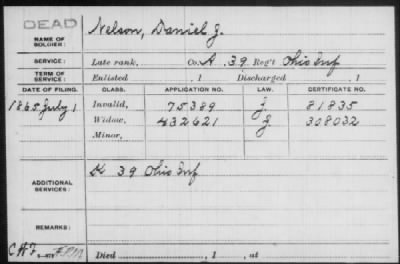 DEAD
NAME OF SOLDIER: Nelson, Daniel J.
SERVICE: Late rank, Co. A. 39 Reg't Ohio Inf
TERM OF SERVICE: Enlisted , 1 Discharged , 1
DATE OF FILING. CLASS. APPLICATION NO. LAW. CERTIFICATE NO.
1865 July 1 Invalid, 75389 J. 81835
Widow, 432621 J. 308032
Minor,
ADDITIONAL SERVICES: K 39 Ohio Inf
REMARKS:
Died , 1 , at